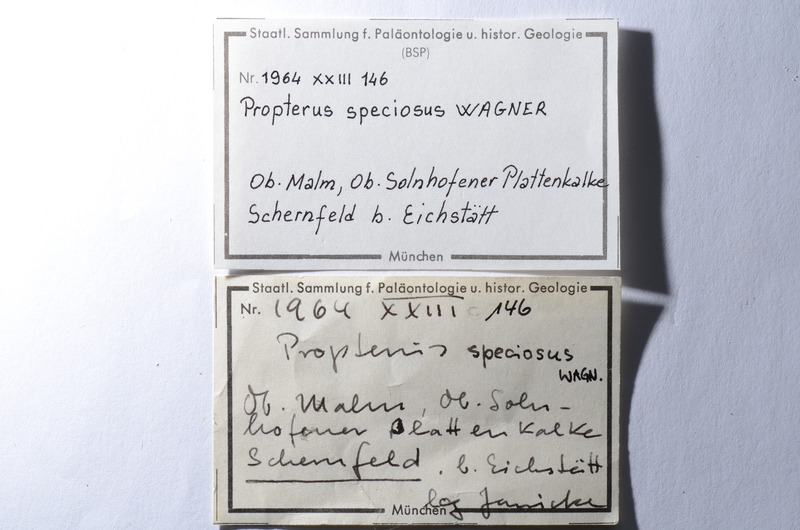 Staatl. Sammlung f. Paläontologie u. histor. Geologie
(BSP)
Nr. 1964 XXIII 146
Propterus speciosus WAGNER
Ob. Malm, Ob. Solnhofener Plattenkalke
Schernfeld b. Eichstätt
München
Staatl. Sammlung f. Paläontologie u. histor. Geologie
Nr. 1964 XXIII 146
Propterus speciosus
WAGN.
Ob. Malm, Ob. Soln-
hofener Plattenkalke
Schernfeld, b. Eichstätt
leg Janicke
München